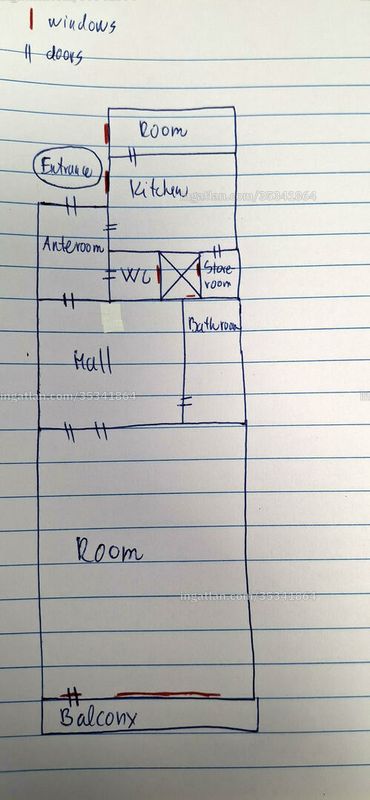 windows
doors
Room
Entrance
Kitchen
ingatlan.com/35341864
Anteroom
WC
Store
room
Bathroom
Hall
ingatlan.com/35341864
Room
ingatlan.com/35341864
Balcony